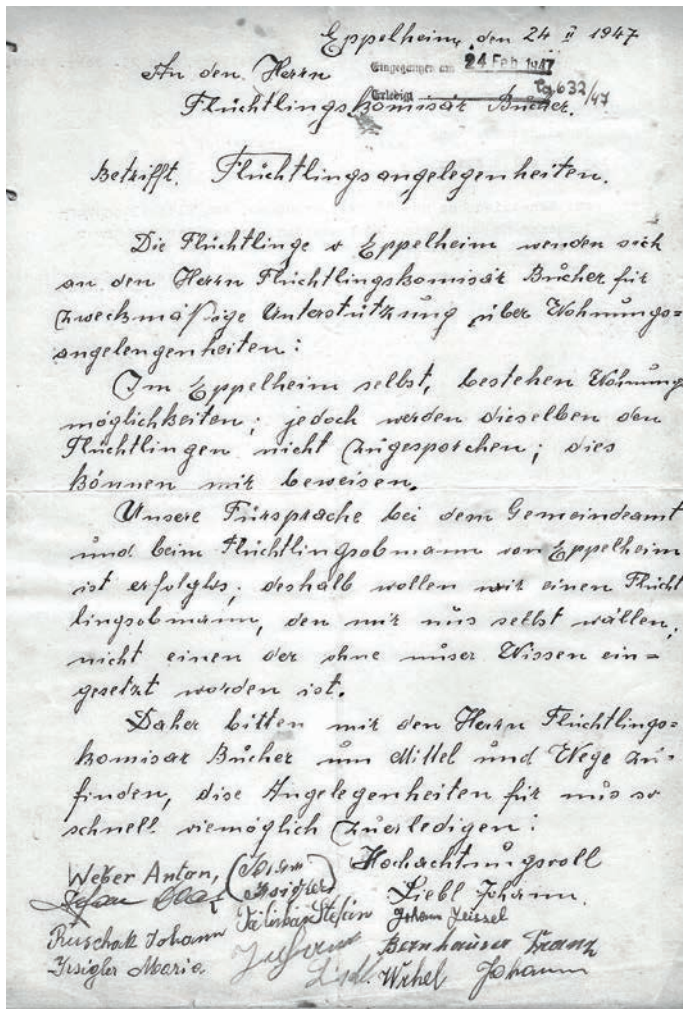 Eppelheim, den 24 II 1947
An den Herrn
Eingegangen am 24. Feb. 1947
Erledigt Tg 632/47
Flüchtlingskomisär Bücher.
Betrifft. Flüchtlingsangelegenheiten.
Die Flüchtlinge v Eppelheim wenden sich
an den Herrn Flüchtlingskomisär Bücher für
zweckmäßige Unterstützung über Wohnungs-
angelengenheiten:
Im Eppelheim selbst, bestehen Wohnung
möglichkeiten; jedoch werden dieselben den
Flüchtlingen nicht zugesporchen; dies
können mir beweisen.
Unsere Fürsprache bei dem Gemeindeamt
und beim Flüchtlingsobmann von Eppelheim
ist erfolglos; deshalb wollen wir einen Flücht
lingsobmann, den mir uns selbst wällen,
nicht einen der ohne unser Wissen ein=
gesetzt worden ist.
Daher bitten mir den Herrn Flüchtlings-
komisar Bücher um Mittel und Wege zu-
finden, dise Angelegenheiten für uns so
schnell viemöglich zuerledigen:
Hochachtungsvoll
Weber Anton,
Liebl Johann.
Stefan
Ruschak Johann
Bernhauser Franz
Irsigler Maria
Johann
Liebl
Johann